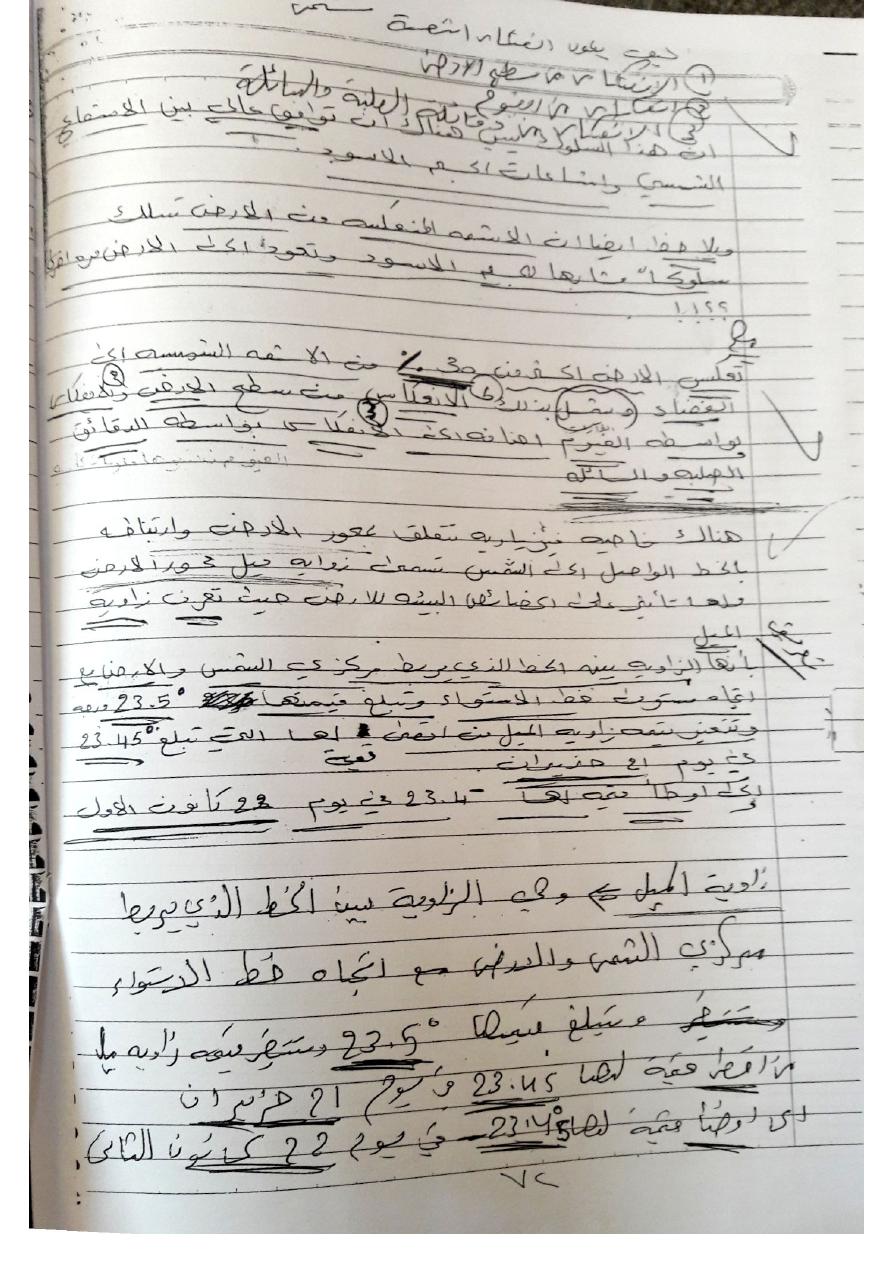 كيف يكون انعكاس اشعة شمس
① الانعكاس من سطح الارض
② انعكاس من الغيوم
③ الانعكاس من دقائق الصلبة والسائلة
ان هذا السلوك ليس هناك ان توافق عالي بين الاشعاع
الشمسي واشعاعات الجسم الاسود.
ويلاحظ ايضا ان الاشعه المنعكسه من الارض تسلك
سلوكاً مشابها للجسم الاسود وتعود الى الارض مره اخرى
؟؟!!
تعكس الارض اكثر من 30٪ من الاشعه الشمسيه الى
الفضاء ويتمثل بذلك ① الانعكاس من سطح الارض ② والانعكاس
بواسطه الغيوم اضافه الى ③ الانعكاس بواسطه الدقائق
الصلبه والسائله
هناك خاصيه فيزياويه تتعلق بمحور الارض وارتباطه
بالخط الواصل الى الشمس تسمى زوايه ميل محور الارض
ولها تأثير على الخصائص البيئه للارض حيث تعرف زاويه
الميل
بأنها الزاويه بينه الخط الذي يربط مركزي الشمس والارض مع
اتجاه مستوى خط الاستواء وتبلغ قيمتها 23.5° درجه
وتتغير قيمه زاويه الميل من اقصى قيمة لها التي تبلغ 23.45°
في يوم 21 حزيران
إلى اوطأ قيمه لها 23.4- في يوم 22 كانون الاول
زاوية الميل ⇐ وهي الزاوية بين الخط الذي يربط
مركزي الشمس والارض مع اتجاه خط الاستواء
وتبلغ قيمتها 23.5° وستتغير قيمه زاويه ميل
من اقصى قيمة لها 23.45 في يوم 21 حزيران
الى اوطأ قيمة لها 23.45°- في يوم 22 كانون الثاني
٧٢